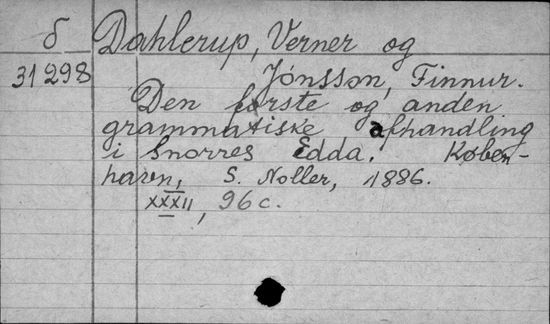 δ Dahlerup, Verner og
31298 Jónsson, Finnur.
Den første og anden
grammatiske afhandling
i Snorres Edda. Køben-
havn, S. Noller, 1886.
XXXII, 96 c.